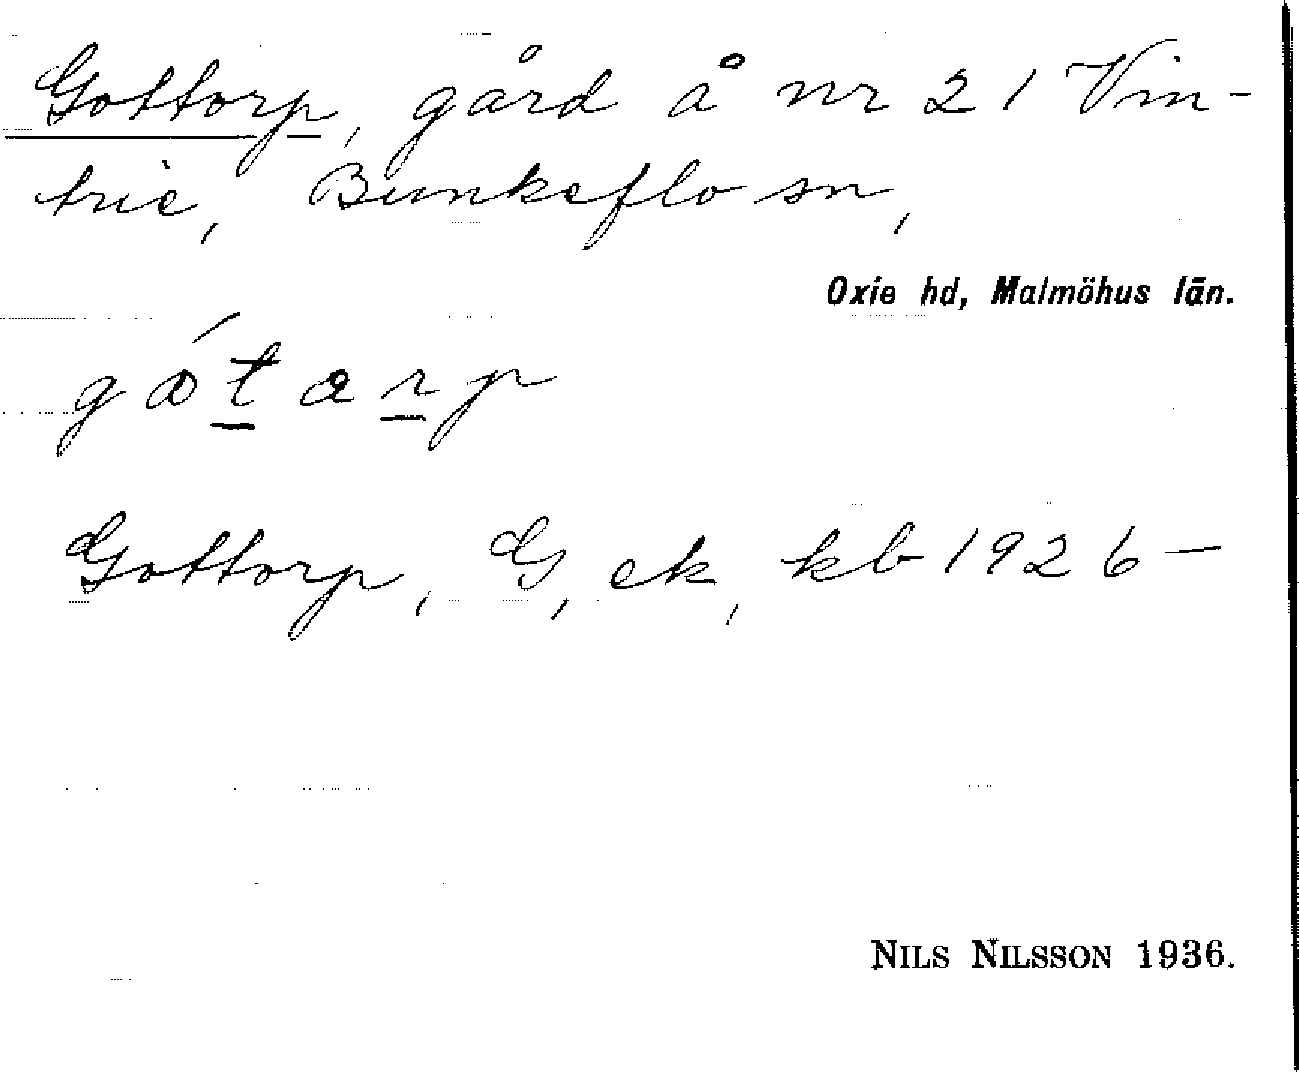 Gottorp, gård å nr 21 Vin-
trie, Bunkeflo sn,
Oxie hd, Malmöhus län.
Gottorp, G, ek, kb 1926—
NILS NILSSON 1936.